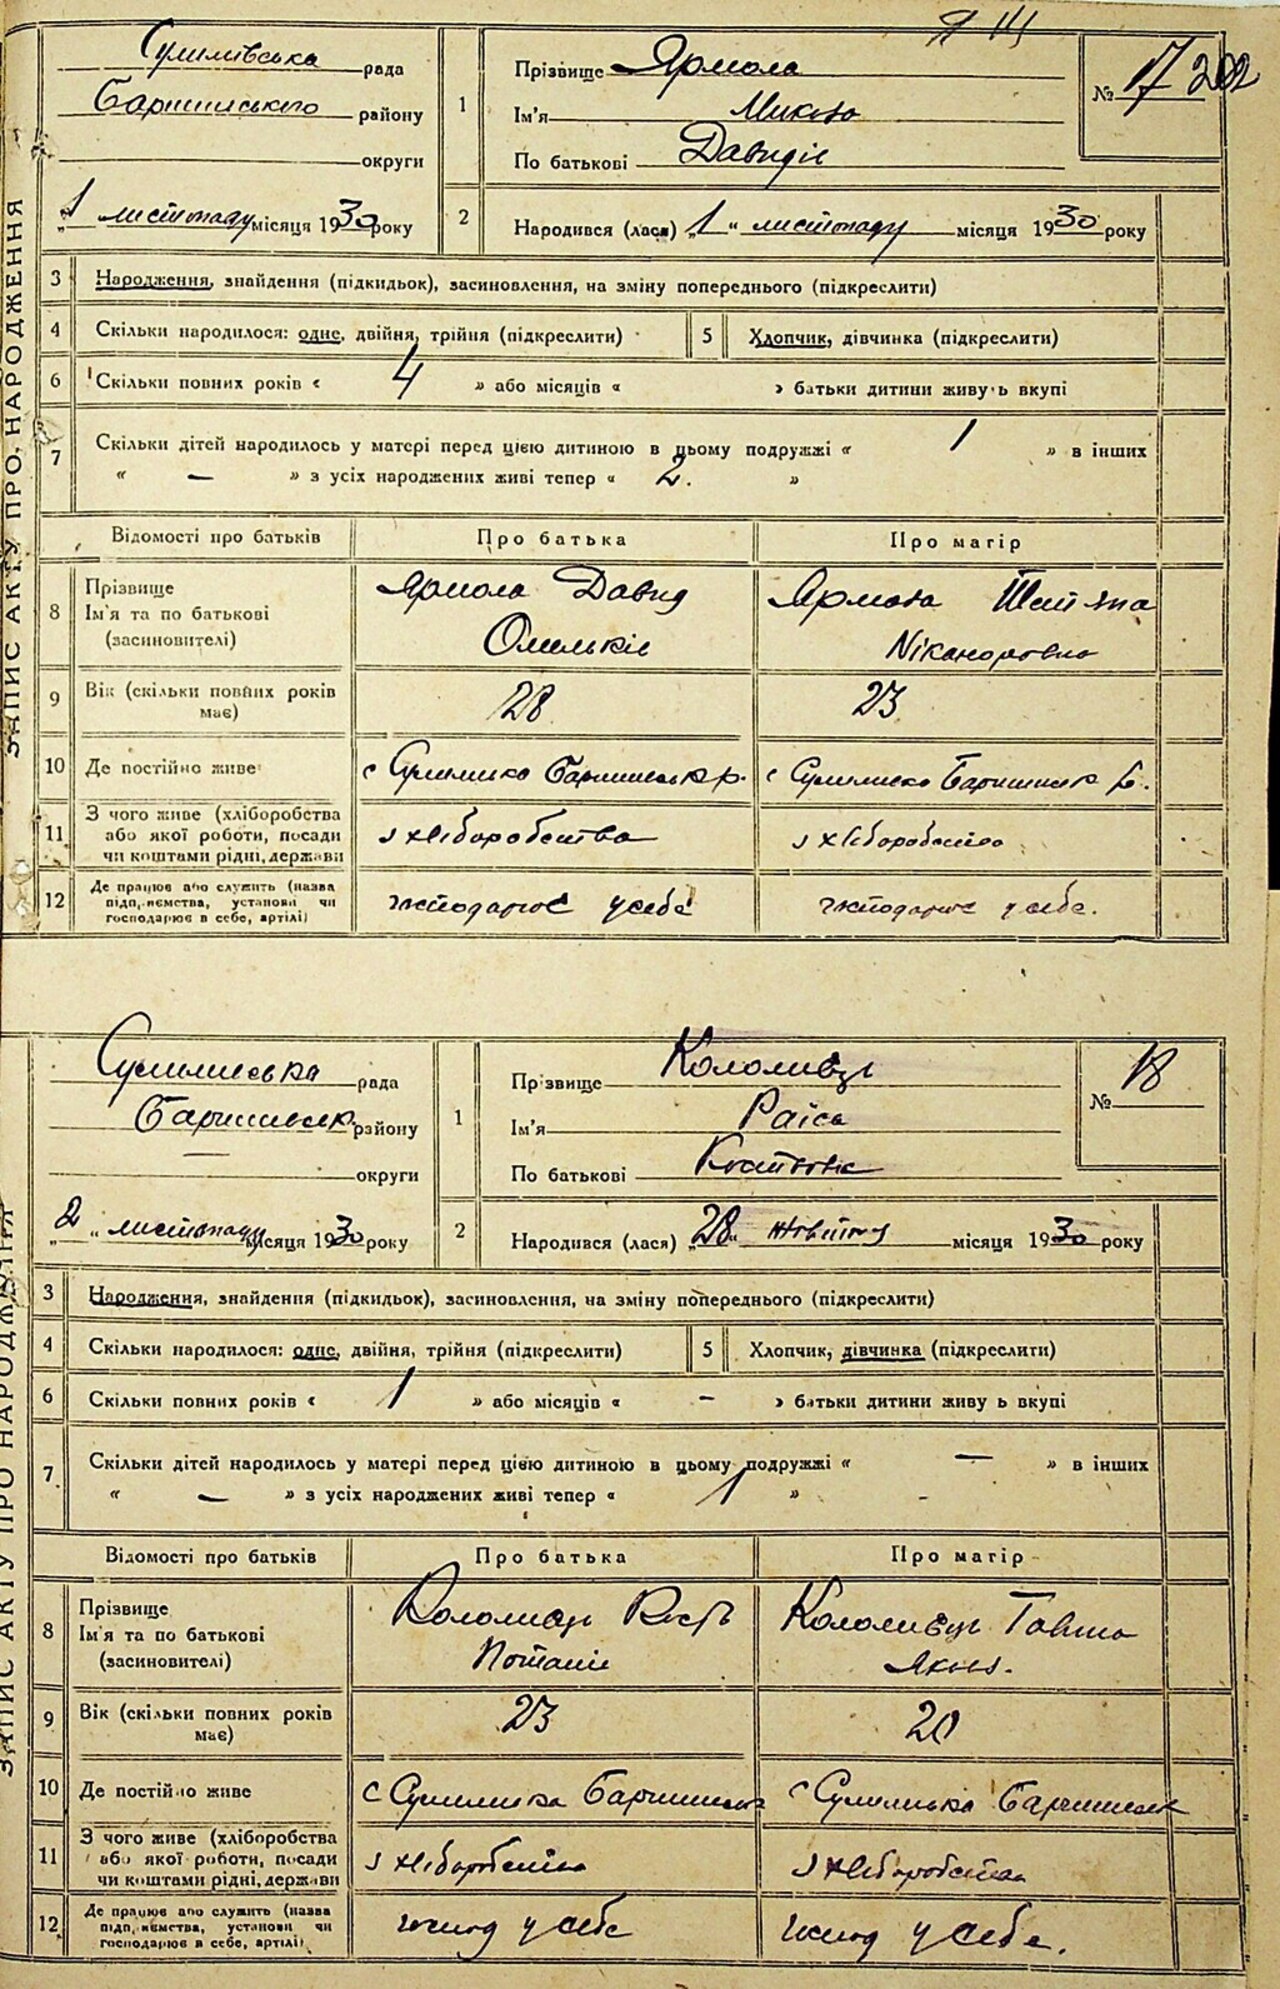 Я
Сулимівська рада
Баришиського району
округи
„1 листопаду місяця 1930 року
1
Прізвище Ярмола
Ім'я Микола
По батькові Давидіє
№ 17 202
2
Народився (лася) „1" листопаду місяця 1930 року
ЗАПИС АКТУ ПРО НАРОДЖЕННЯ
3 Народження, знайдення (підкидьок), засиновлення, на зміну попереднього (підкреслити)
4 Скільки народилося: одне, двійня, трійня (підкреслити) 5 Хлопчик, дівчинка (підкреслити)
6 Скільки повних років « 4 » або місяців « » батьки дитини живуть вкупі
7 Скільки дітей народилось у матері перед цією дитиною в цьому подружжі « 1 » в інших
« — » з усіх народжених живі тепер « 2. »
Відомості про батьків Про батька Про матір
8 Прізвище
Ім'я та по батькові
(засиновителі)
Ярмола Давид
Омелькіє
Ярмола Тетяна
Ніканоровна
9 Вік (скільки повних років
має)
28
23
10 Де постійно живе
с Сулимівка р.
с Сулимівка
11 З чого живе (хліборобства
або якої роботи, посади
чи коштами рідні, держави
з хліборобства
з хліборобства
12 Де працює або служить (назва
підприємства, установи чи
господарює в себе, артілі)
господарює у себе
господарює у себе.
рада
району
округи
2 „ листопаду місяця 1930 року
1
Прізвище Коломиєць
Ім'я Раїса
По батькові
№ 18
2
Народився (лася) „28" жовтня місяця 1930 року
ЗАПИС АКТУ ПРО НАРОДЖЕННЯ
3 Народження, знайдення (підкидьок), засиновлення, на зміну попереднього (підкреслити)
4 Скільки народилося: одне, двійня, трійня (підкреслити) 5 Хлопчик, дівчинка (підкреслити)
6 Скільки повних років « 1 » або місяців « – » батьки дитини живуть вкупі
7 Скільки дітей народилось у матері перед цією дитиною в цьому подружжі « — » в інших
« — » з усіх народжених живі тепер « 1 »
Відомості про батьків Про батька Про матір
8 Прізвище
Ім'я та по батькові
(засиновителі)
Коломиєць Кость
Потапіє
Коломиєць Ганна
9 Вік (скільки повних років
має)
23
20
10 Де постійно живе
с Сулимівка
с Сулимівка
11 З чого живе (хліборобства
або якої роботи, посади
чи коштами рідні, держави
з хліборобства
з хліборобства
12 Де працює або служить (назва
підприємства, установи чи
господарює в себе, артілі)
господ у себе
господ у себе.